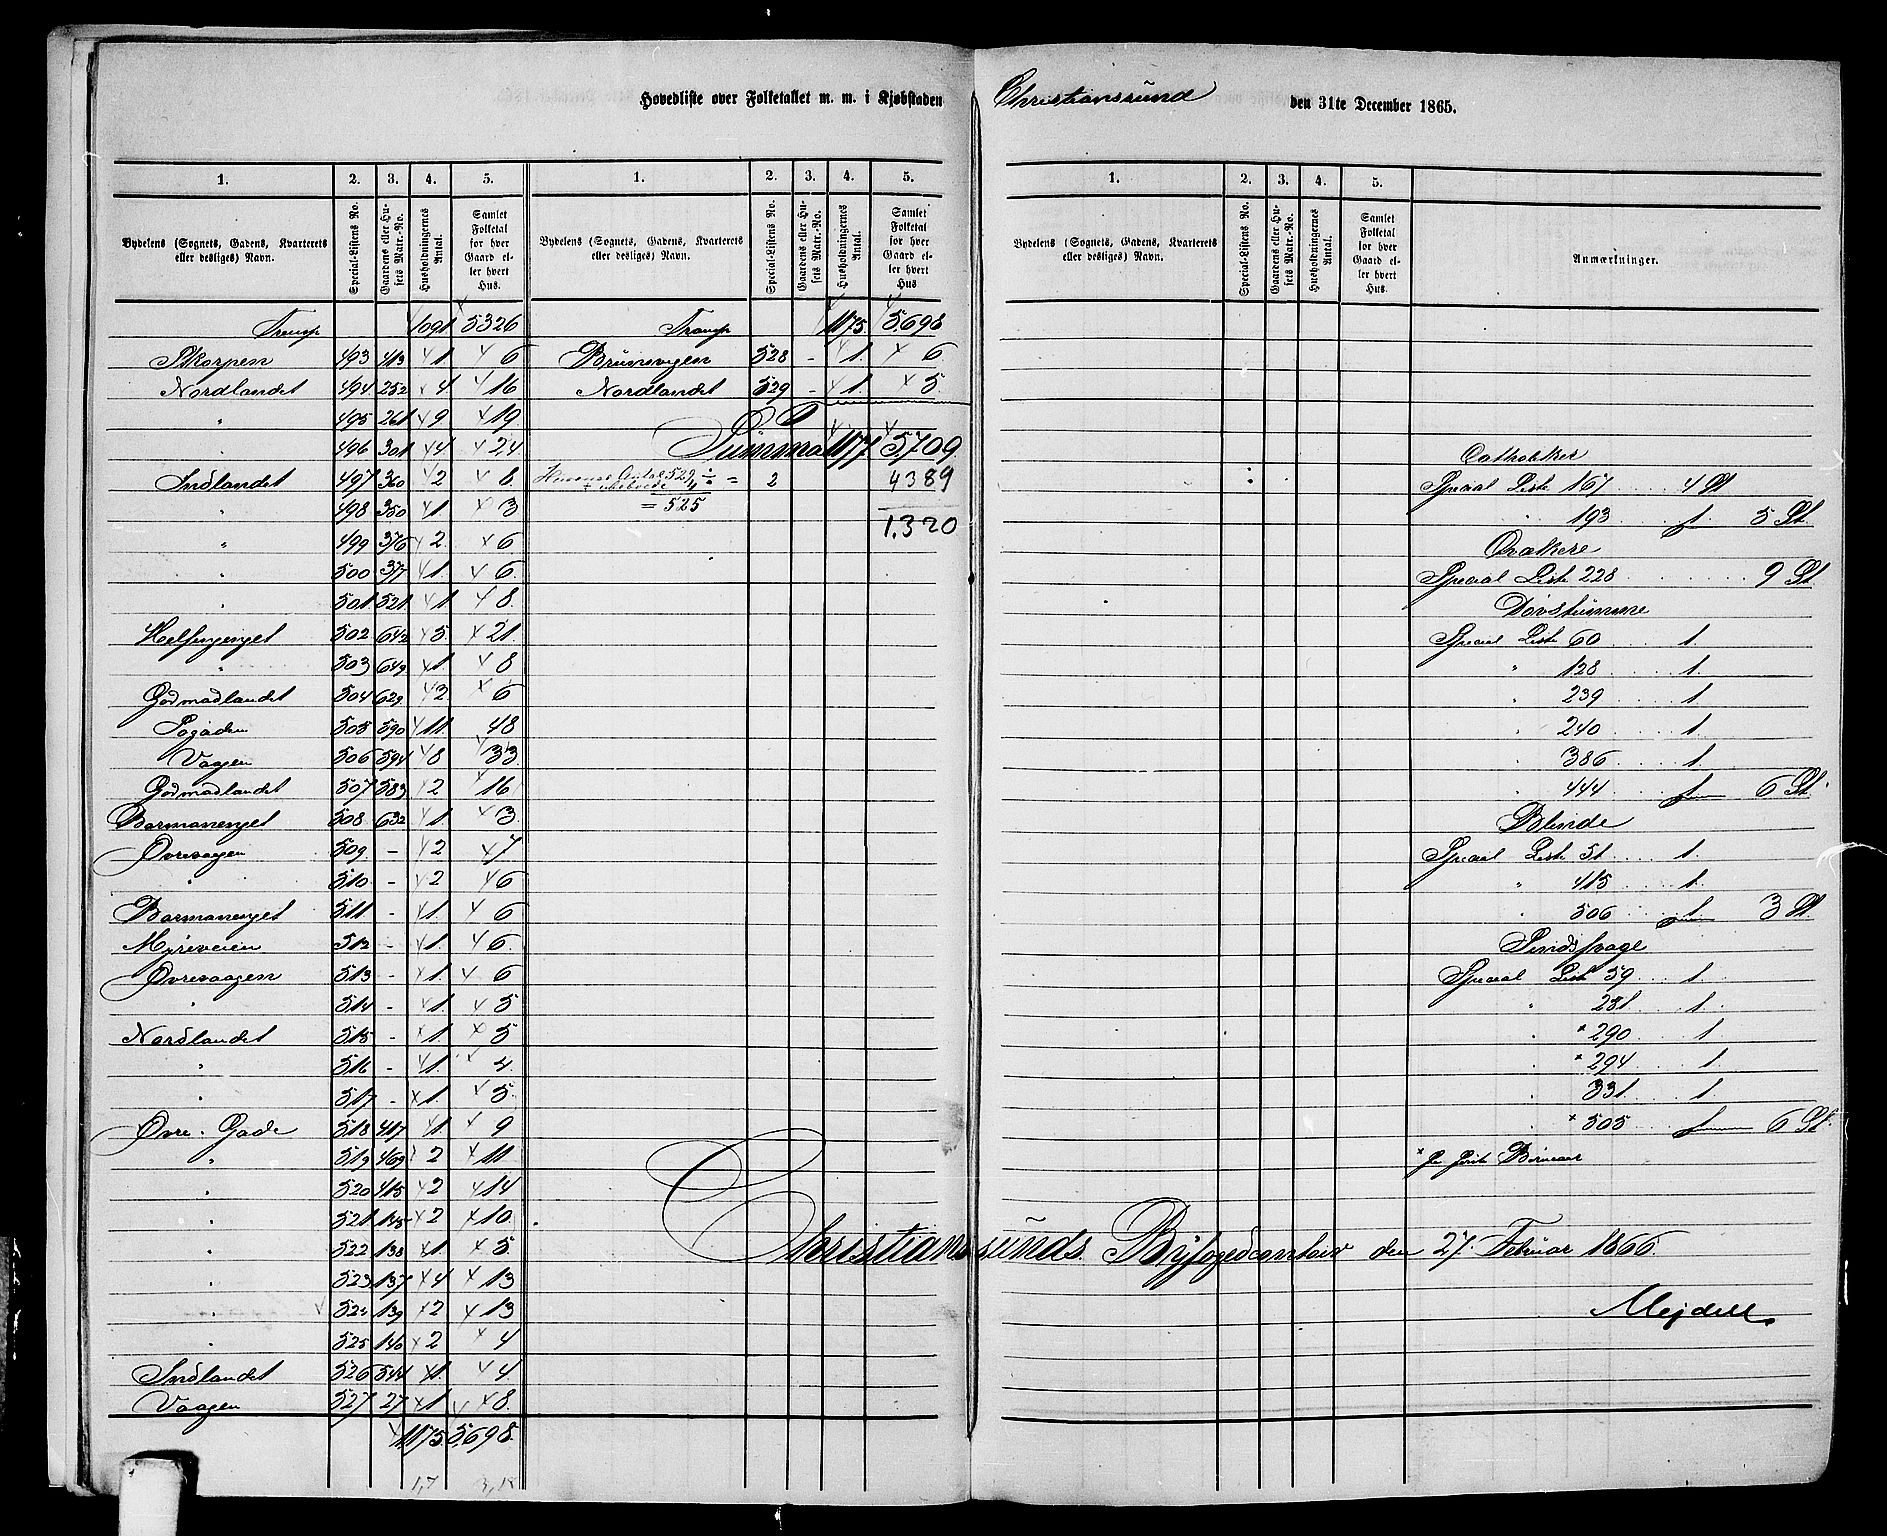 Hovedliste over Folketallet m. m. i Kjøbstaden Christianssund den 31te December 1865.
1. 2. 3. 4. 5. 1. 2. 3. 4. 5.
Bydelens (Sognets, Gadens, Kvarterets eller desliges) Navn. Special-Listens No. Gaardens eller Husets Matr.-No. Husholdningernes Antal. Samlet Folketal for hver Gaard eller hvert Hus.
Bydelens (Sognets, Gadens, Kvarterets eller desliges) Navn. Special-Listens No. Gaardens eller Husets Matr.-No. Husholdningernes Antal. Samlet Folketal for hver Gaard eller hvert Hus
Transp 1091 5326
Skorpen 493 413 1 6
Nordlandet 494 252 4 16
" 495 261 9 19
" 496 301 4 24
Indlandet 497 360 2 8
" 498 350 1 3
" 499 376 2 6
" 500 377 1 6
" 501 521 1 8
502 642 5 21
" 503 649 1 8
Gødmadlandet 504 629 2 6
505 590 11 48
Vagen 506 594 8 33
Gødmadlandet 507 583 2 16
Barmanenget 508 632 1 3
Øvrevagen 509 - 2 7
" 510 - 2 6
Barmanenget 511 - 1 6
Myreveien 512 - 1 6
Øvrevaagen 513 - 1 6
" 514 - 1 5
Nordlandet 515 - 1 5
" 516 - 1 4
" 517 - 1 5
Øvre Gade 518 417 1 9
" 519 469 2 11
" 520 415 2 14
" 521 135 2 10
" 522 138 1 5
" 523 137 4 13
" 524 139 2 13
" 525 140 2 4
Indlandet 526 544 1 4
Vaagen 527 27 1 8
1175 5698
Transp 1175 5698
Brunsvigen 528 - 1 6
Nordlandet 529 - 1 5
Summa 1177 5709
Husenes Antal 529 ÷ = 2 4389
4
= 525 1,320
1. 2. 3. 4. 5.
Bydelens (Sognets, Gadens, Kvarterets eller desliges) Navn. Special-Listens No. Gaardens eller Husets Matr.-No. Husholdningernes Antal. Samlet Folketal for hver Gaard eller hvert Hus. Anmærkninger.
Catholikker
Special Liste 167 4 St
" 193 1 5 St.
Qvækere
Special Liste 228 9 St
Døvstumme
Special Liste 60 1
" 128 1
" 239 1
" 240 1
" 386 1
" 444 1 6 St.
Blinde
Special Liste 51 1
" 415 1
" 506 1 3 St.
Sindssvage
Special Liste 59 1
" 231 1
" × 290 1
" × 294 1
" 331 1
" × 505 1 6 St.
Christianssunds Byfogedcontoir den 27. Februar 1866.
Mejdell.